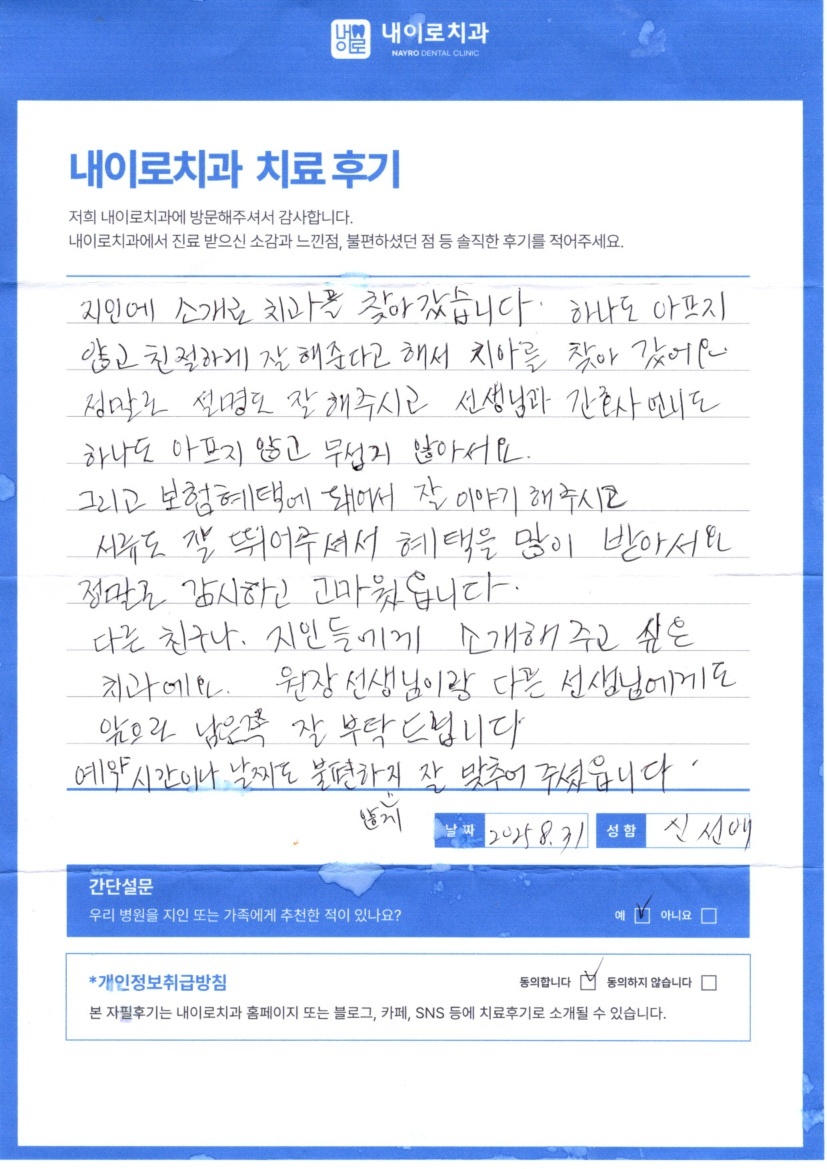 내이로
내이로치과
NAYRO DENTAL CLINIC
내이로치과 치료 후기
저희 내이로치과에 방문해주셔서 감사합니다.
내이로치과에서 진료 받으신 소감과 느낀점, 불편하셨던 점 등 솔직한 후기를 적어주세요.
지인에 소개로 치과를 찾아갔습니다. 하나도 아프지
않고 친절하게 잘 해준다고 해서 치아를 찾아 갔어요
정말로 설명도 잘 해주시고 선생님과 간호사 언니도
하나도 아프지 않고 무섭지 않아서요.
그리고 보험혜택에 돼어서 잘 이야기 해주시고
서류도 잘 뛰어주셔서 혜택을 많이 받아서요
정말로 감사하고 고마웠읍니다.
다른 친구나. 지인들에게 소개해 주고 싶은
치과에요. 원장선생님이랑 다른 선생님에게도
앞으로 남은쪽 잘 부탁드립니다
예약시간이나 날짜도 불편하지 잘 맞추어 주셨읍니다.
않게
날짜 2025 8. 31 성함 신선애
간단설문
우리 병원을 지인 또는 가족에게 추천한 적이 있나요? 예 아니요
*개인정보취급방침 동의합니다 동의하지 않습니다
본 자필후기는 내이로치과 홈페이지 또는 블로그, 카페, SNS 등에 치료후기로 소개될 수 있습니다.